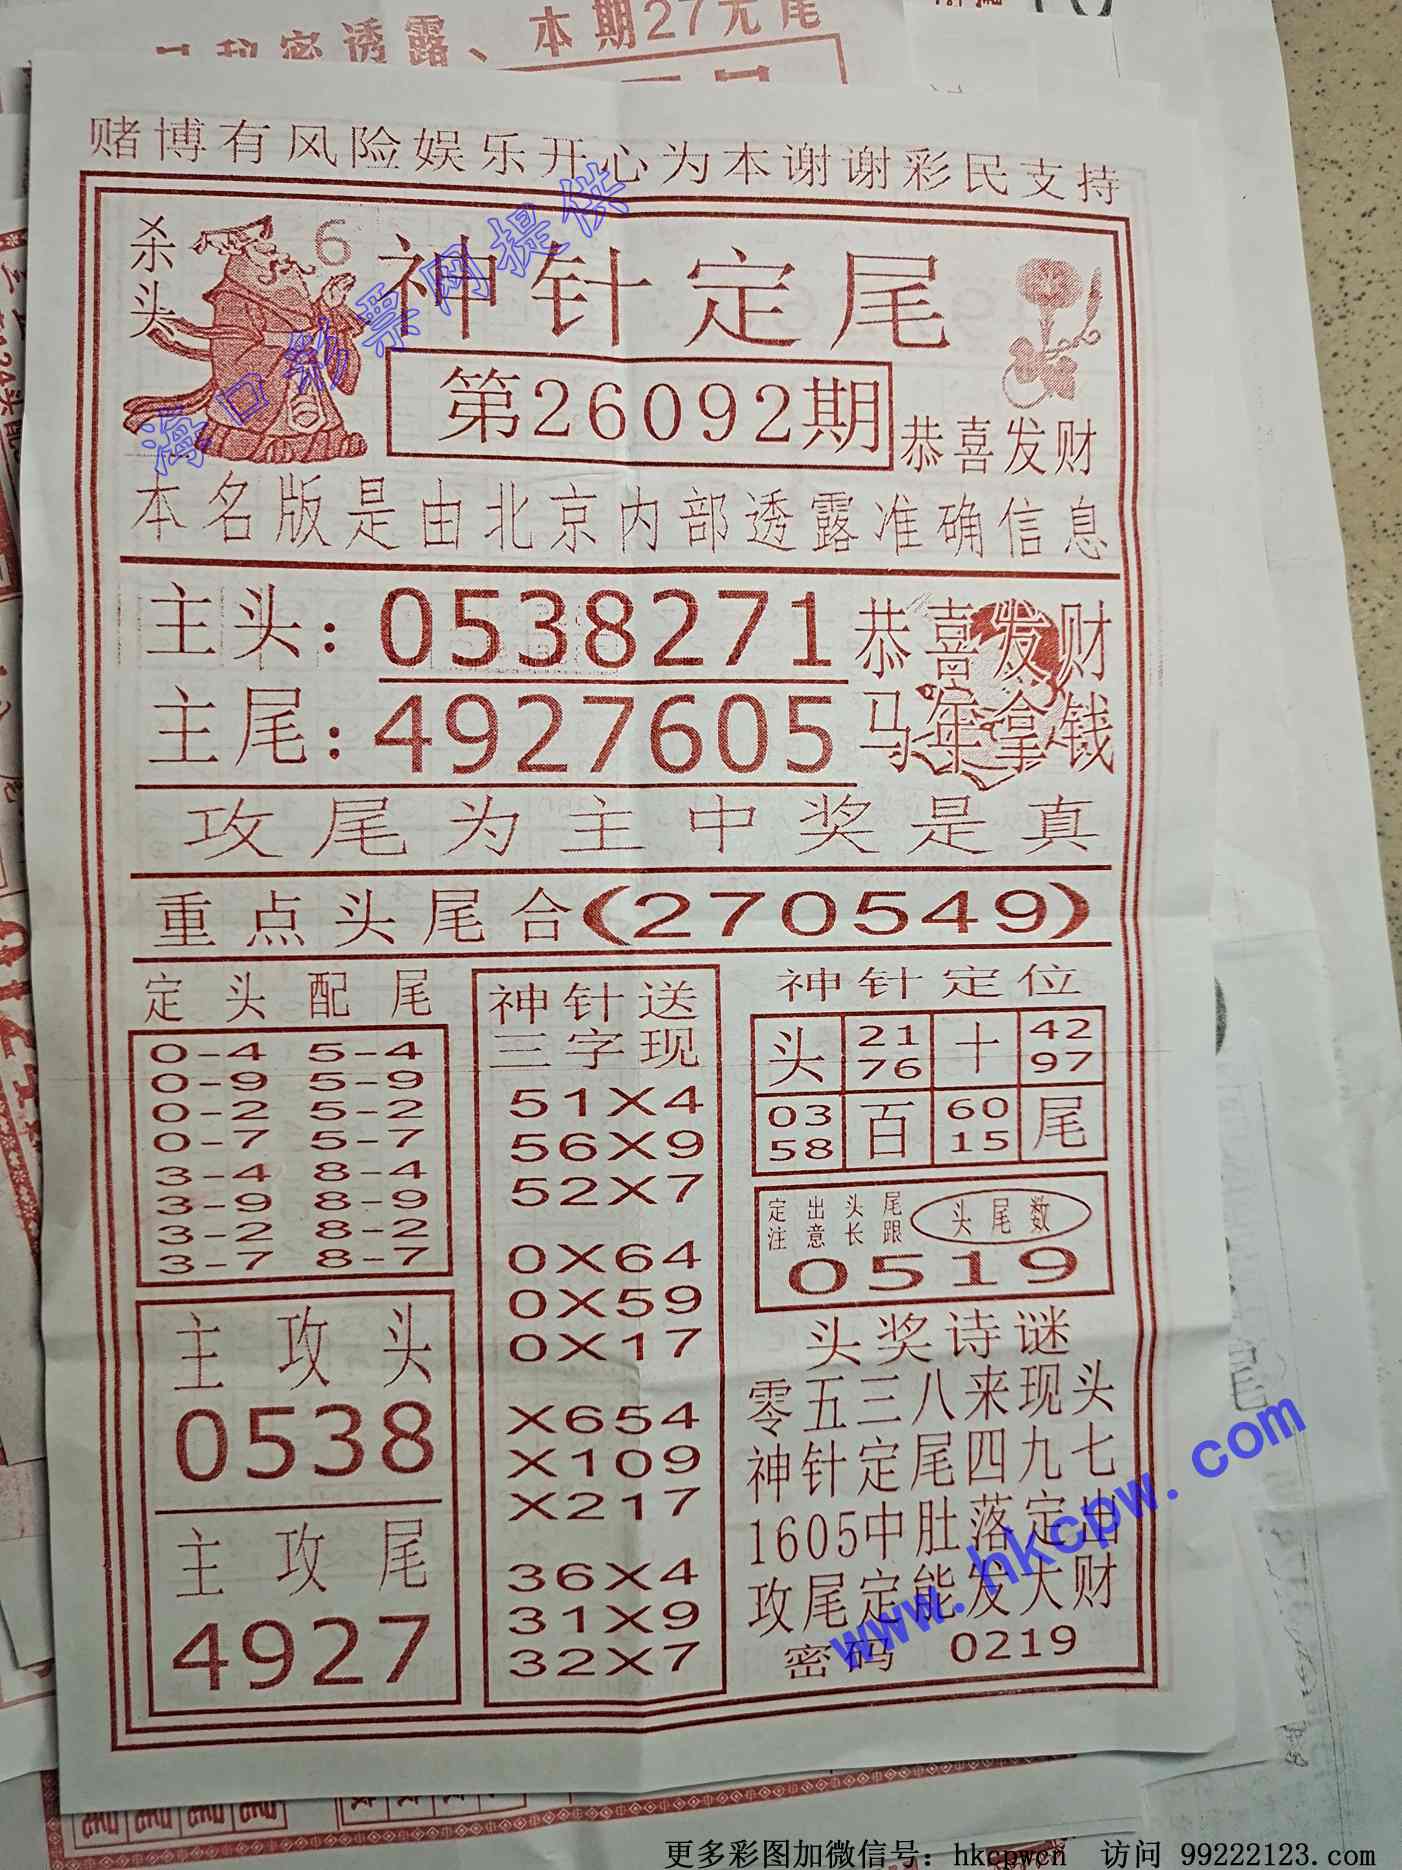 密透露、本期27无尾
赌博有风险娱乐开心为本谢谢彩民支持
杀头
6
神针定尾
第26092期
恭喜发财
本名版是由北京内部透露准确信息
主头:0538271
恭喜发财
主尾:4927605
马年拿钱
攻尾为主中奖是真
重点头尾合(270549)
定头配尾
0-4 5-4
0-9 5-9
0-2 5-2
0-7 5-7
3-4 8-4
3-9 8-9
3-2 8-2
3-7 8-7
主攻头
0538
主攻尾
4927
神针送
三字现
51X4
56X9
52X7
0X64
0X59
0X17
X654
X109
X217
36X4
31X9
32X7
神针定位
头 2176 十 4297
0358 百 6015 尾
定出头尾
注意长跟
头尾数
0519
头奖诗谜
零五三八来现头
神针定尾四九七
1605中肚落定出
攻尾定能发大财
密码 0219
海口彩票网提供
www.hkcpw.com
更多彩图加微信号: hkcpwcn 访问 99222123.com